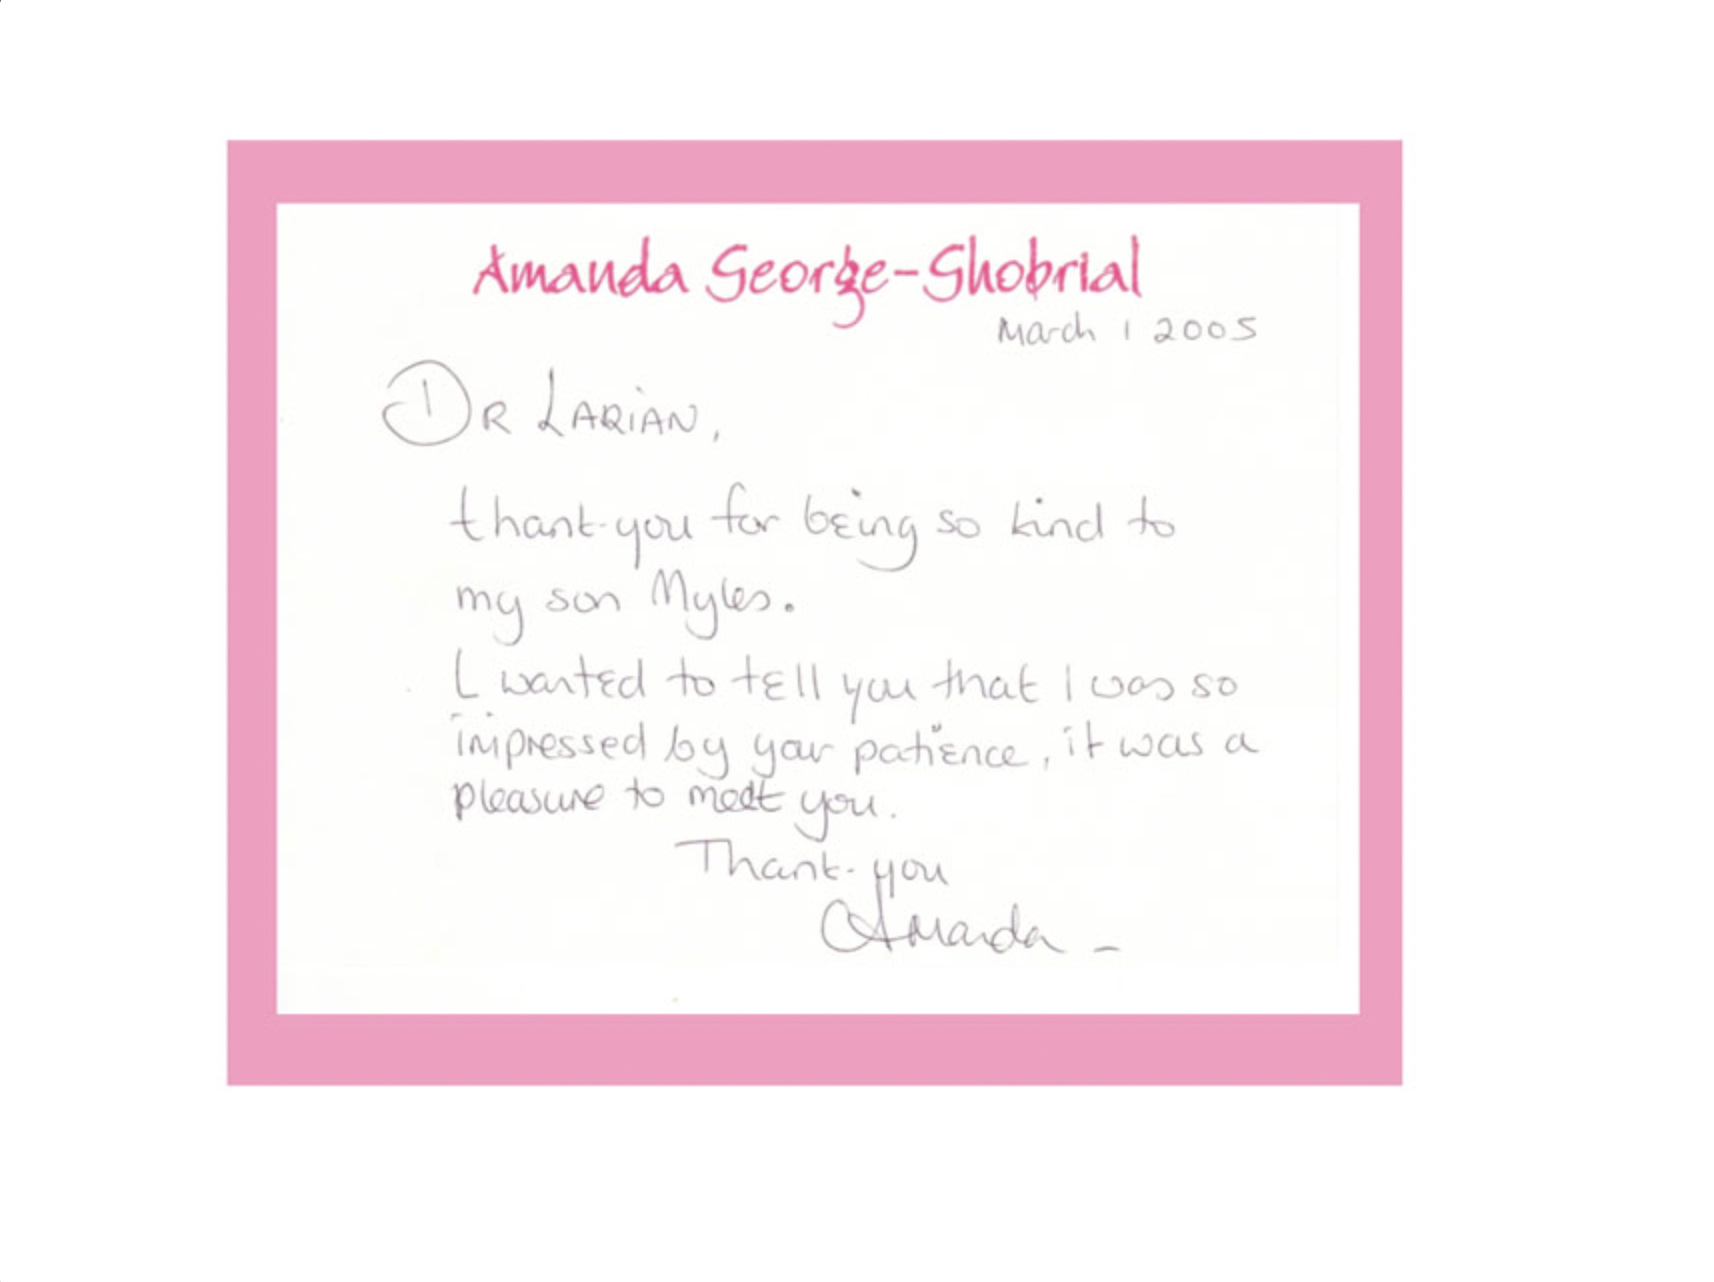 Amanda George-Ghobrial
March 1 2005
DR LARIAN,
thank-you for being so kind to
my son Myles.
I wanted to tell you that I was so
impressed by your patience, it was a
pleasure to meet you.
Thank-you
Amanda -